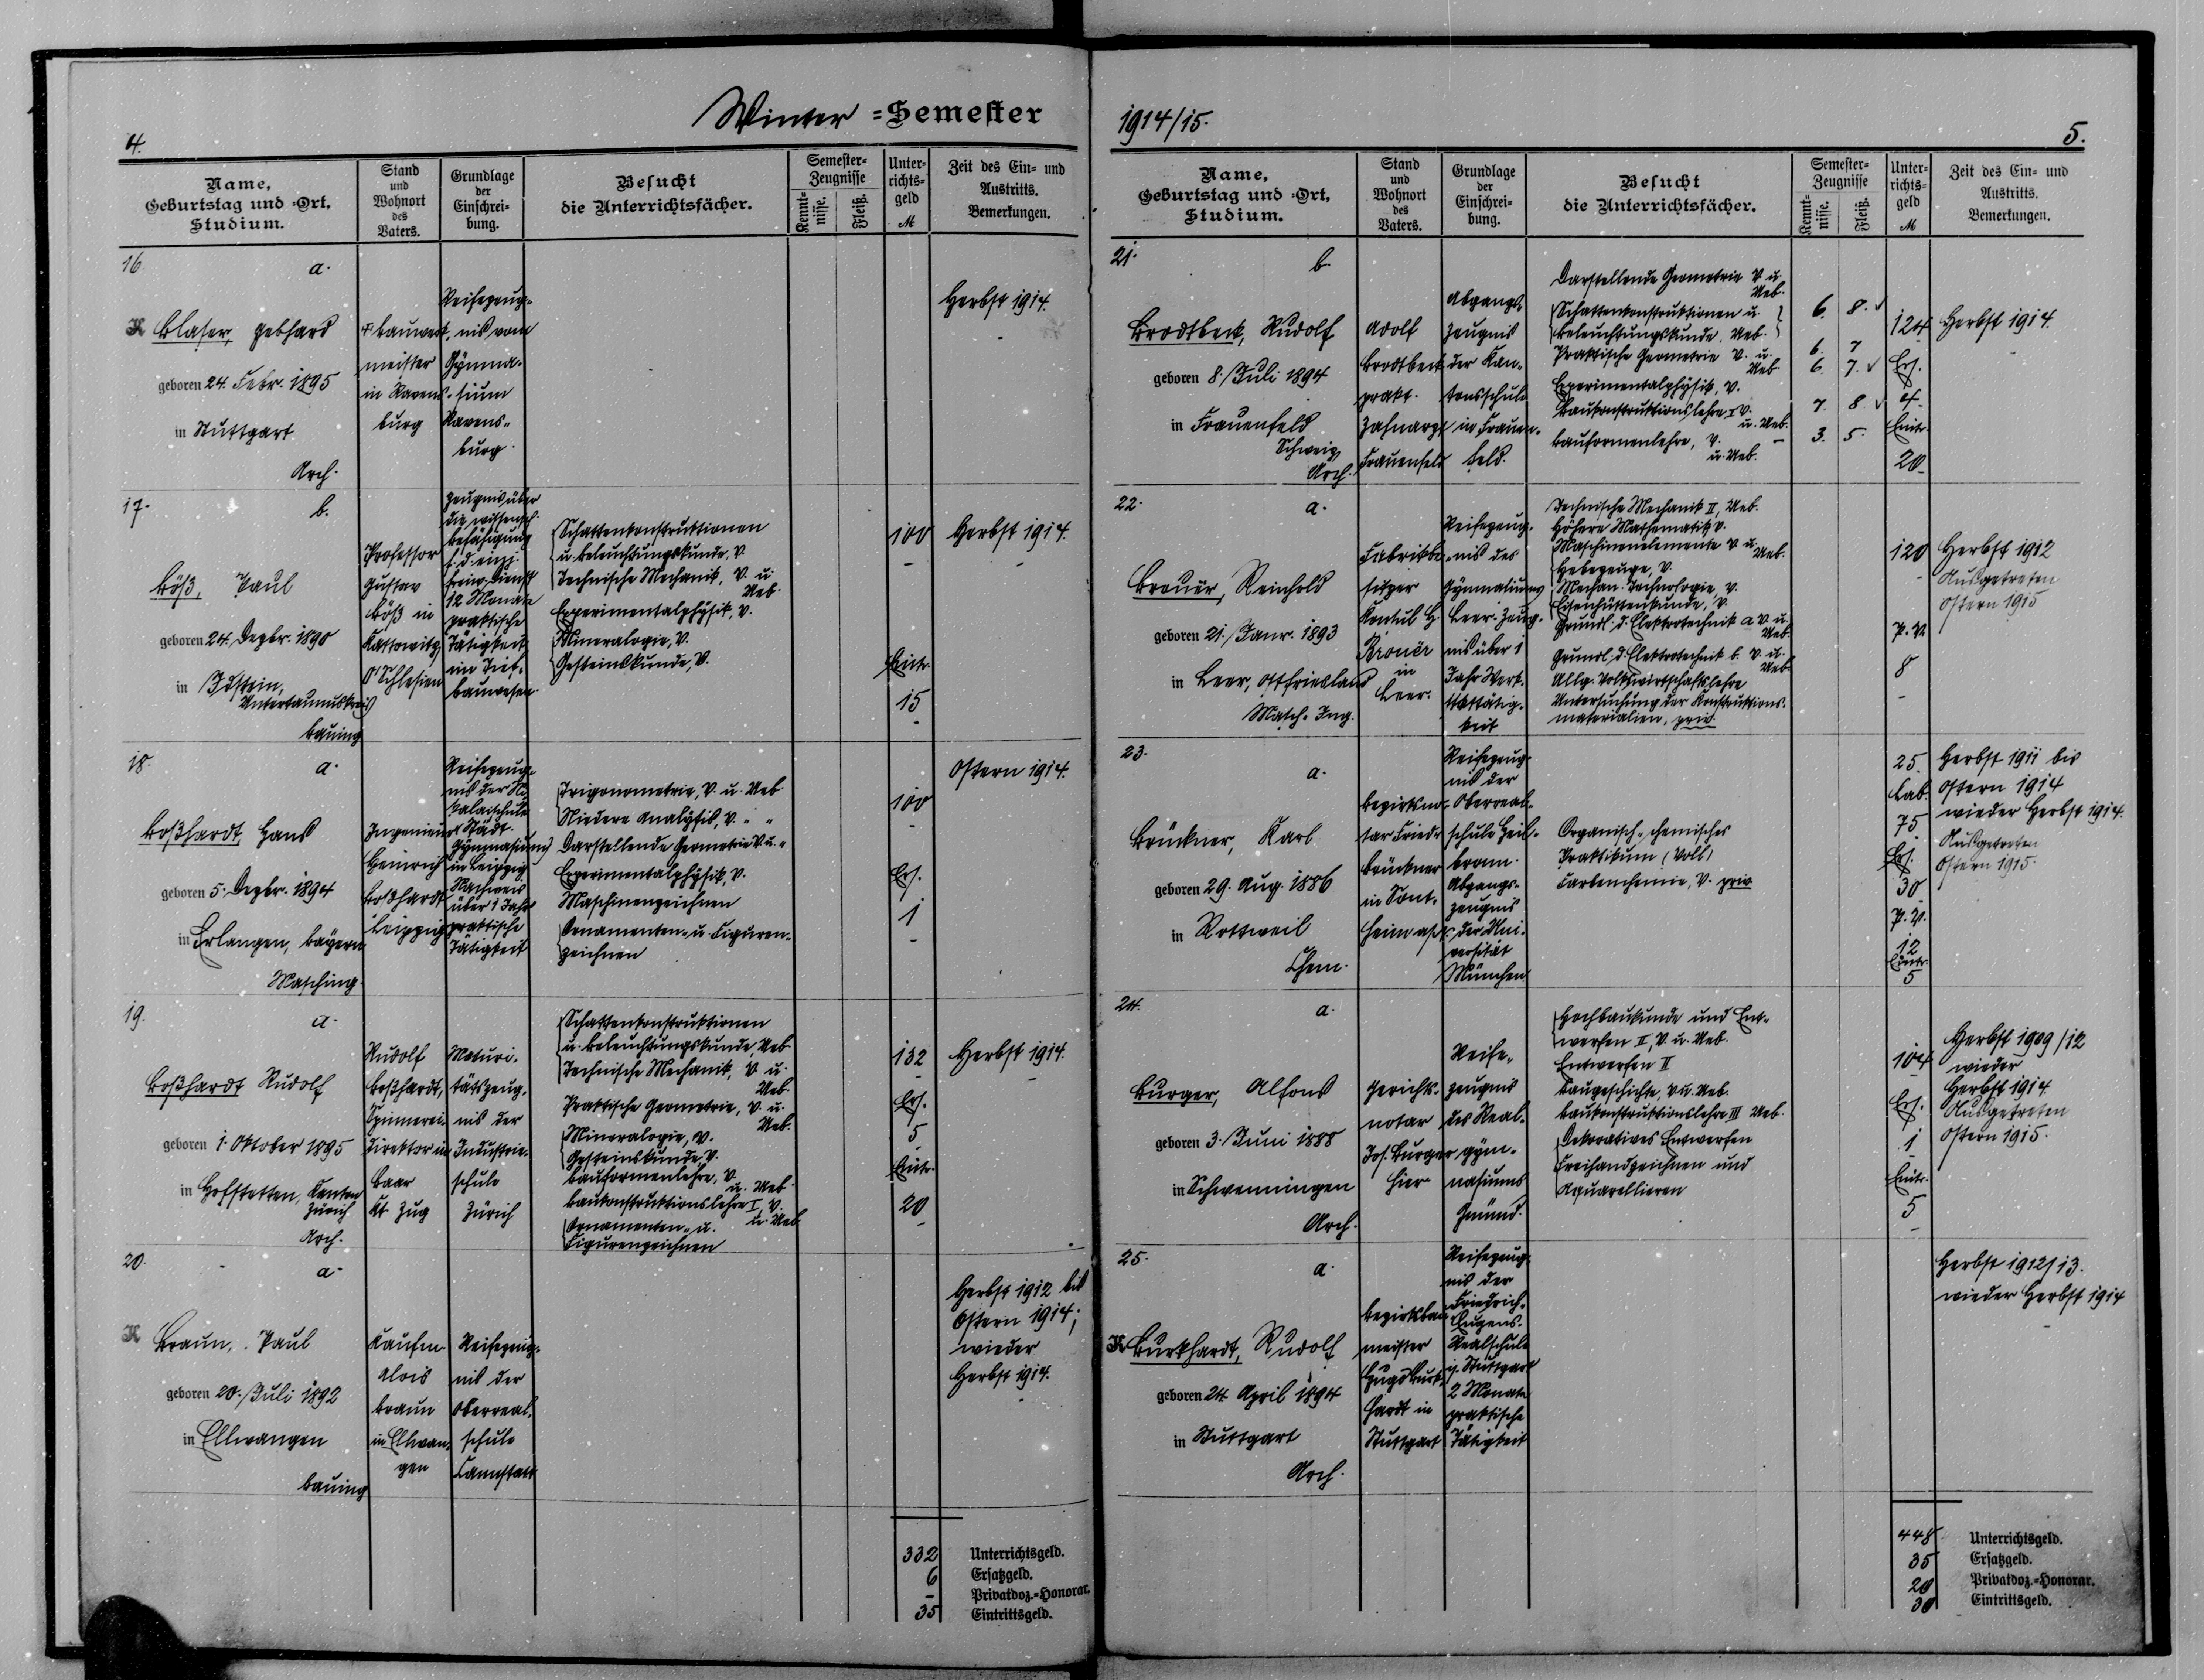 Winter = Semester
4.
Name,
Geburtstag und =Ort,
Studium.
Stand
und
Wohnort
des
Vaters.
Grundlage
der
Einschrei=
bung.
Besucht
die Unterrichtsfächer.
Semester=
Zeugnisse
Kennt-
nisse.
Fleiß.
Unter=
richts=
geld
M
Zeit des Ein= und
Austritts.
Bemerkungen.
16.
a.
K Blaser, Gebhard
geboren 24. Febr. 1895
in Stuttgart
Arch.
† Bauwerk-
meister
in Ravens-
burg
Reifezeug-
nis vom
Gymna-
sium
Ravens-
burg.
Herbst 1914.
17.
b.
Böß, Paul
geboren 24. Dezbr. 1890
in Idstein,
Untertaunuskreis
Bauing
Professor
Gustav
Böß in
Kattowitz
O/Schlesien
Zeugnis über
die wissensch.
Befähigung
f. d. einj.
freiw. Dienst
12 Monate
praktische
Tätigkeit
im Tief-
bauwesen.
Schattenkonstruktionen
u. Beleuchtungskunde, V.
Technische Mechanik, V. u.
Ueb.
Experimentalphysik, V.
Mineralogie, V.
Gesteinskunde, V.
100
Eintr.
15
Herbst 1914.
18.
a.
Boßhardt, Hans
geboren 5. Dezbr. 1894
in Erlangen, Bayern
Masching.
Ingenieur
Heinrich
Boßhardt
Leipzig
Reifezeug-
nis der Ni-
kolaischule
(Städt.
Gymnasium)
in Leipzig.
Nachweis
über 1 Jahr
praktische
Tätigkeit
Trigonometrie, V. u. Ueb.
Niedere Analysis, V. " "
Darstellende Geometrie V. u. "
Experimentalphysik, V.
Maschinenzeichnen
Ornamenten- u. Figuren-
zeichnen
100
Ers.
1
Ostern 1914.
19.
a.
Boßhardt Rudolf
geboren 1. Oktober 1895
in Hofstetten, Kanton
Zürich
Arch.
Rudolf
Boßhardt,
Spinnerei-
direktor in
Baar
Kt. Zug
Maturi-
tätszeug-
nis der
Industrie-
schule
Zürich
Schattenkonstruktionen
u. Beleuchtungskunde, Ueb.
Technische Mechanik, V. u.
Ueb.
Praktische Geometrie, V. u.
Ueb.
Mineralogie, V.
Gesteinskunde, V.
Bauformenlehre, V.
u. Ueb.
Baukonstruktionslehre I, V.
u. Ueb.
Ornamenten- u.
Figurenzeichnen
132
Ers.
5
Eintr.
20
Herbst 1914.
20.
a.
K Braun, Paul
geboren 20. Juli 1892
in Ellwangen
Bauing
Kaufm.
Alois
Braun
in Ellwan-
gen
Reifezeug-
nis der
Oberreal-
schule
Cannstatt
Herbst 1912 bis
Ostern 1914;
wieder
Herbst 1914.
332 Unterrichtsgeld.
6 Ersatzgeld.
- Privatdoz.=Honorar.
35 Eintrittsgeld.
1914/15.
5.
Name,
Geburtstag und =Ort,
Studium.
Stand
und
Wohnort
des
Vaters.
Grundlage
der
Einschrei=
bung.
Besucht
die Unterrichtsfächer.
Semester=
Zeugnisse
Kennt-
nisse.
Fleiß.
Unter=
richts=
geld
M
Zeit des Ein= und
Austritts.
Bemerkungen.
21.
b.
Brodtbeck, Rudolf
geboren 8. Juli 1894
in Frauenfeld
Schweiz
Arch.
Adolf
Brodtbeck
prakt.
Zahnarzt
Frauenfeld
Abgangs-
zeugnis
der Kan-
tonsschule
in Frauen-
feld.
Darstellende Geometrie V. u.
Ueb.
Schattenkonstruktionen u.
Beleuchtungskunde, Ueb.
Praktische Geometrie V. u.
Ueb.
Experimentalphysik, V.
Baukonstruktionslehre I V.
u. Ueb.
Bauformenlehre, V.
u. Ueb.
6. 8. ✓
6. 7
6. 7. ✓
7. 8. ✓
3. 5.
124
Ers.
4
Eintr.
20
Herbst 1914.
22.
a.
Brouër, Reinhold
geboren 21. Janr. 1893
in Leer, Ostfriesland
Masch. Ing.
Fabrikbe-
sitzer
Konsul H.
Brouër
in
Leer.
Reifezeug-
nis des
Gymnasiums
Leer. Zeug-
nis über 1
Jahr Werk-
stattätig-
keit
Technische Mechanik II, Ueb.
Höhere Mathematik V.
Maschinenelemente V. u.
Ueb.
Hebezeuge, V.
Mechan. Technologie, V.
Eisenhüttenkunde, V.
Grundl. d. Elektrotechnik a V. u.
Ueb.
Grundl. d. Elektrotechnik b. V. u.
Ueb.
Allg. Volkswirtschaftslehre
Untersuchung der Konstruktions-
materialien, priv.
120
P. D.
8
Herbst 1912
Ausgetreten
Ostern 1915
23.
a.
Brückner, Karl
geboren 29. Aug. 1886
in Rottweil
Chem.
Bezirksno-
tar Friedr.
Brückner
in Sont-
heim
Reifezeug-
nis der
Oberreal-
schule Heil-
bronn.
Abgangs-
zeugnis
der Uni-
versität
München.
Organisch-chemisches
Praktikum (Voll)
Farbenchemie, V. priv.
25.
Lab.
75
Ers.
30
P. D.
12
Eintr.
5
Herbst 1911 bis
Ostern 1914
wieder Herbst 1914.
Ausgetreten
Ostern 1915.
24.
a.
Burger, Alfons
geboren 3. Juni 1888
in Schwenningen
Arch.
Gerichts-
notar
Jos. Burger
hier
Reife-
zeugnis
des Real-
gym-
nasiums
Gmünd.
Hochbaukunde und Ent-
werfen II, V. u. Ueb.
Entwerfen II
Baugeschichte, V. u. Ueb.
Baukonstruktionslehre III Ueb.
Dekoratives Entwerfen
Freihandzeichnen und
Aquarellieren
104
Ers.
1
Eintr.
5
Herbst 1909/12
wieder
Herbst 1914
Ausgetreten
Ostern 1915.
25.
a.
K Burkhardt, Rudolf
geboren 24. April 1894
in Stuttgart
Arch.
Bezirksbau-
meister
Hugo Burk-
hardt in
Stuttgart
Reifezeug-
nis der
Friedrich-
Eugens-
Realschule
i. Stuttgart
2 Monate
praktische
Tätigkeit
Herbst 1912/13.
wieder Herbst 1914
448 Unterrichtsgeld.
35 Ersatzgeld.
20 Privatdoz.=Honorar.
30 Eintrittsgeld.